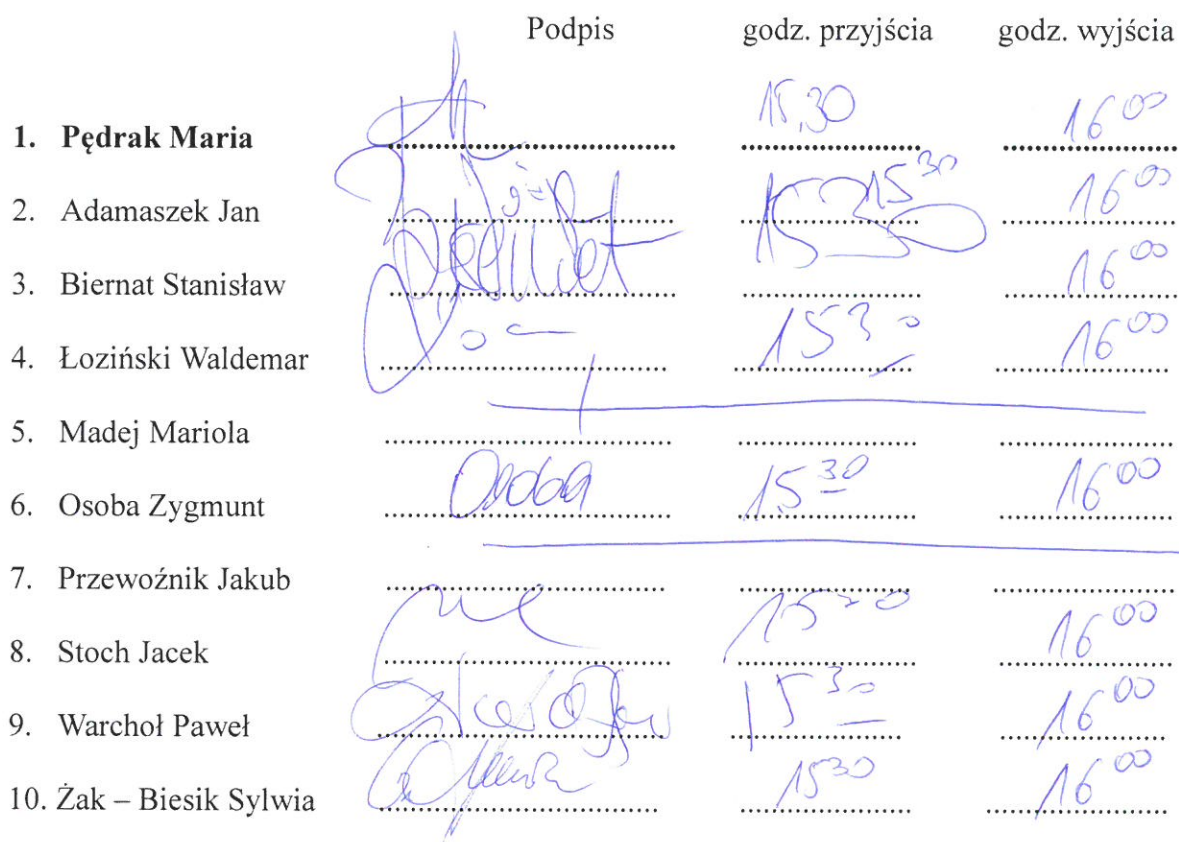 Podpis godz. przyjścia godz. wyjścia
1. Pędrak Maria 15,30 16 00
2. Adamaszek Jan 15 30 16 00
3. Biernat Stanisław 15 30 16 00
4. Łoziński Waldemar 15 30 16 00
5. Madej Mariola
6. Osoba Zygmunt Osoba 15 30 16 00
7. Przewoźnik Jakub
8. Stoch Jacek 15 30 16 00
9. Warchoł Paweł 15 30 16 00
10. Żak – Biesik Sylwia 15 30 16 00